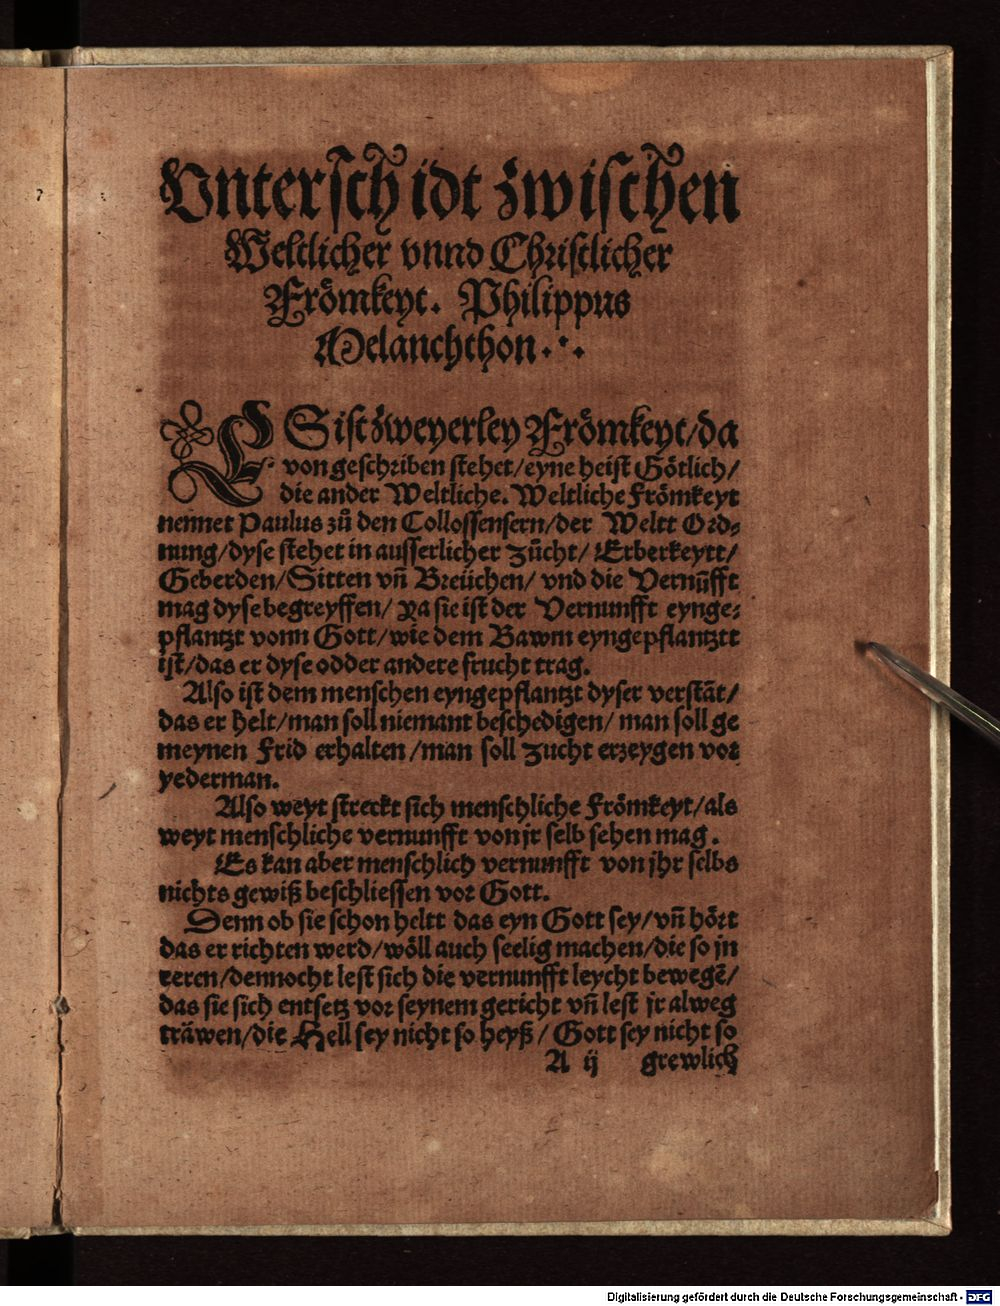 Vntersch idt zwischen
Weltlicher vnnd Christlicher
Frömkeyt. Philippus
Melanchthon.
ES ist zweyerley Frömkeyt/da
von geschriben stehet/eyne heist Götlich/
die ander Weltliche. Weltliche Frömkeyt
nennet Paulus zů den Collossensern/der Weltt Ord-
nung/dyse stehet in ausserlicher zücht/ Erberkeytt/
Geberden/Sitten vñ Breüchen/ vnd die Vernũfft
mag dyse begreyffen/ Ya sie ist der Vernunfft eynge-
pflantzt vonn Gott/wie dem Bawm eyngepflantztt
ist/das er dyse odder andere frucht trag.
Also ist dem menschen eyngepflantzt dyser verstãt/
das er helt/man soll niemant beschedigen/ man soll ge
meynen Frid erhalten/man soll zucht erzeygen vor
yederman.
Also weyt streckt sich menschliche Frömkeyt/als
weyt menschliche vernunfft von jr selb sehen mag.
Es kan aber menschlich vernunfft von jhr selbs
nichts gewiß beschliessen vor Gott.
Denn ob sie schon heltt das eyn Gott sey/vñ hört
das er richten werd/wöll auch seelig machen/die so jn
eeren/dennocht lest sich die vernunfft leycht bewegẽ/
das sie sich entsetz vor seynem gericht vñ lest jr alweg
träwen/die Hell sey nicht so heyß/ Gott sey nicht so
A ij grewlich
Digitalisierung gefördert durch die Deutsche Forschungsgemeinschaft - DFG